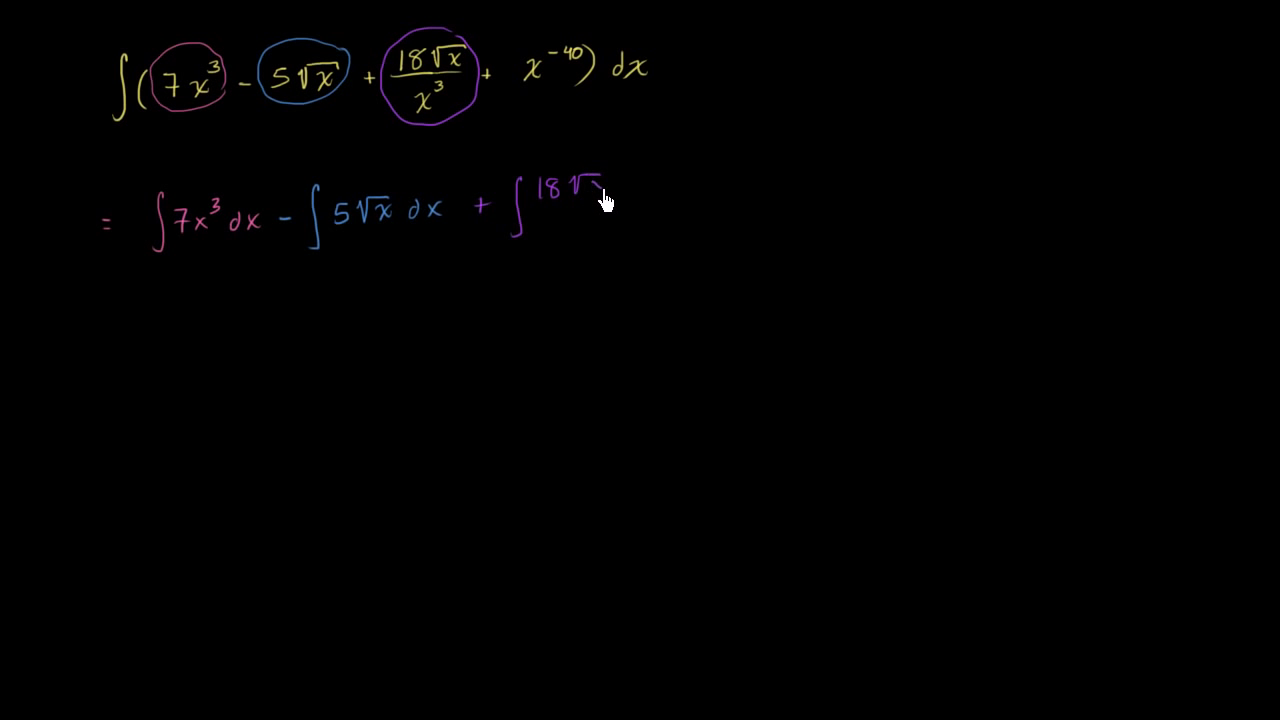 ∫(7x³ - 5√x + 18√x/x³ + x⁻⁴⁰) dx
= ∫7x³ dx - ∫5√x dx + ∫18√x